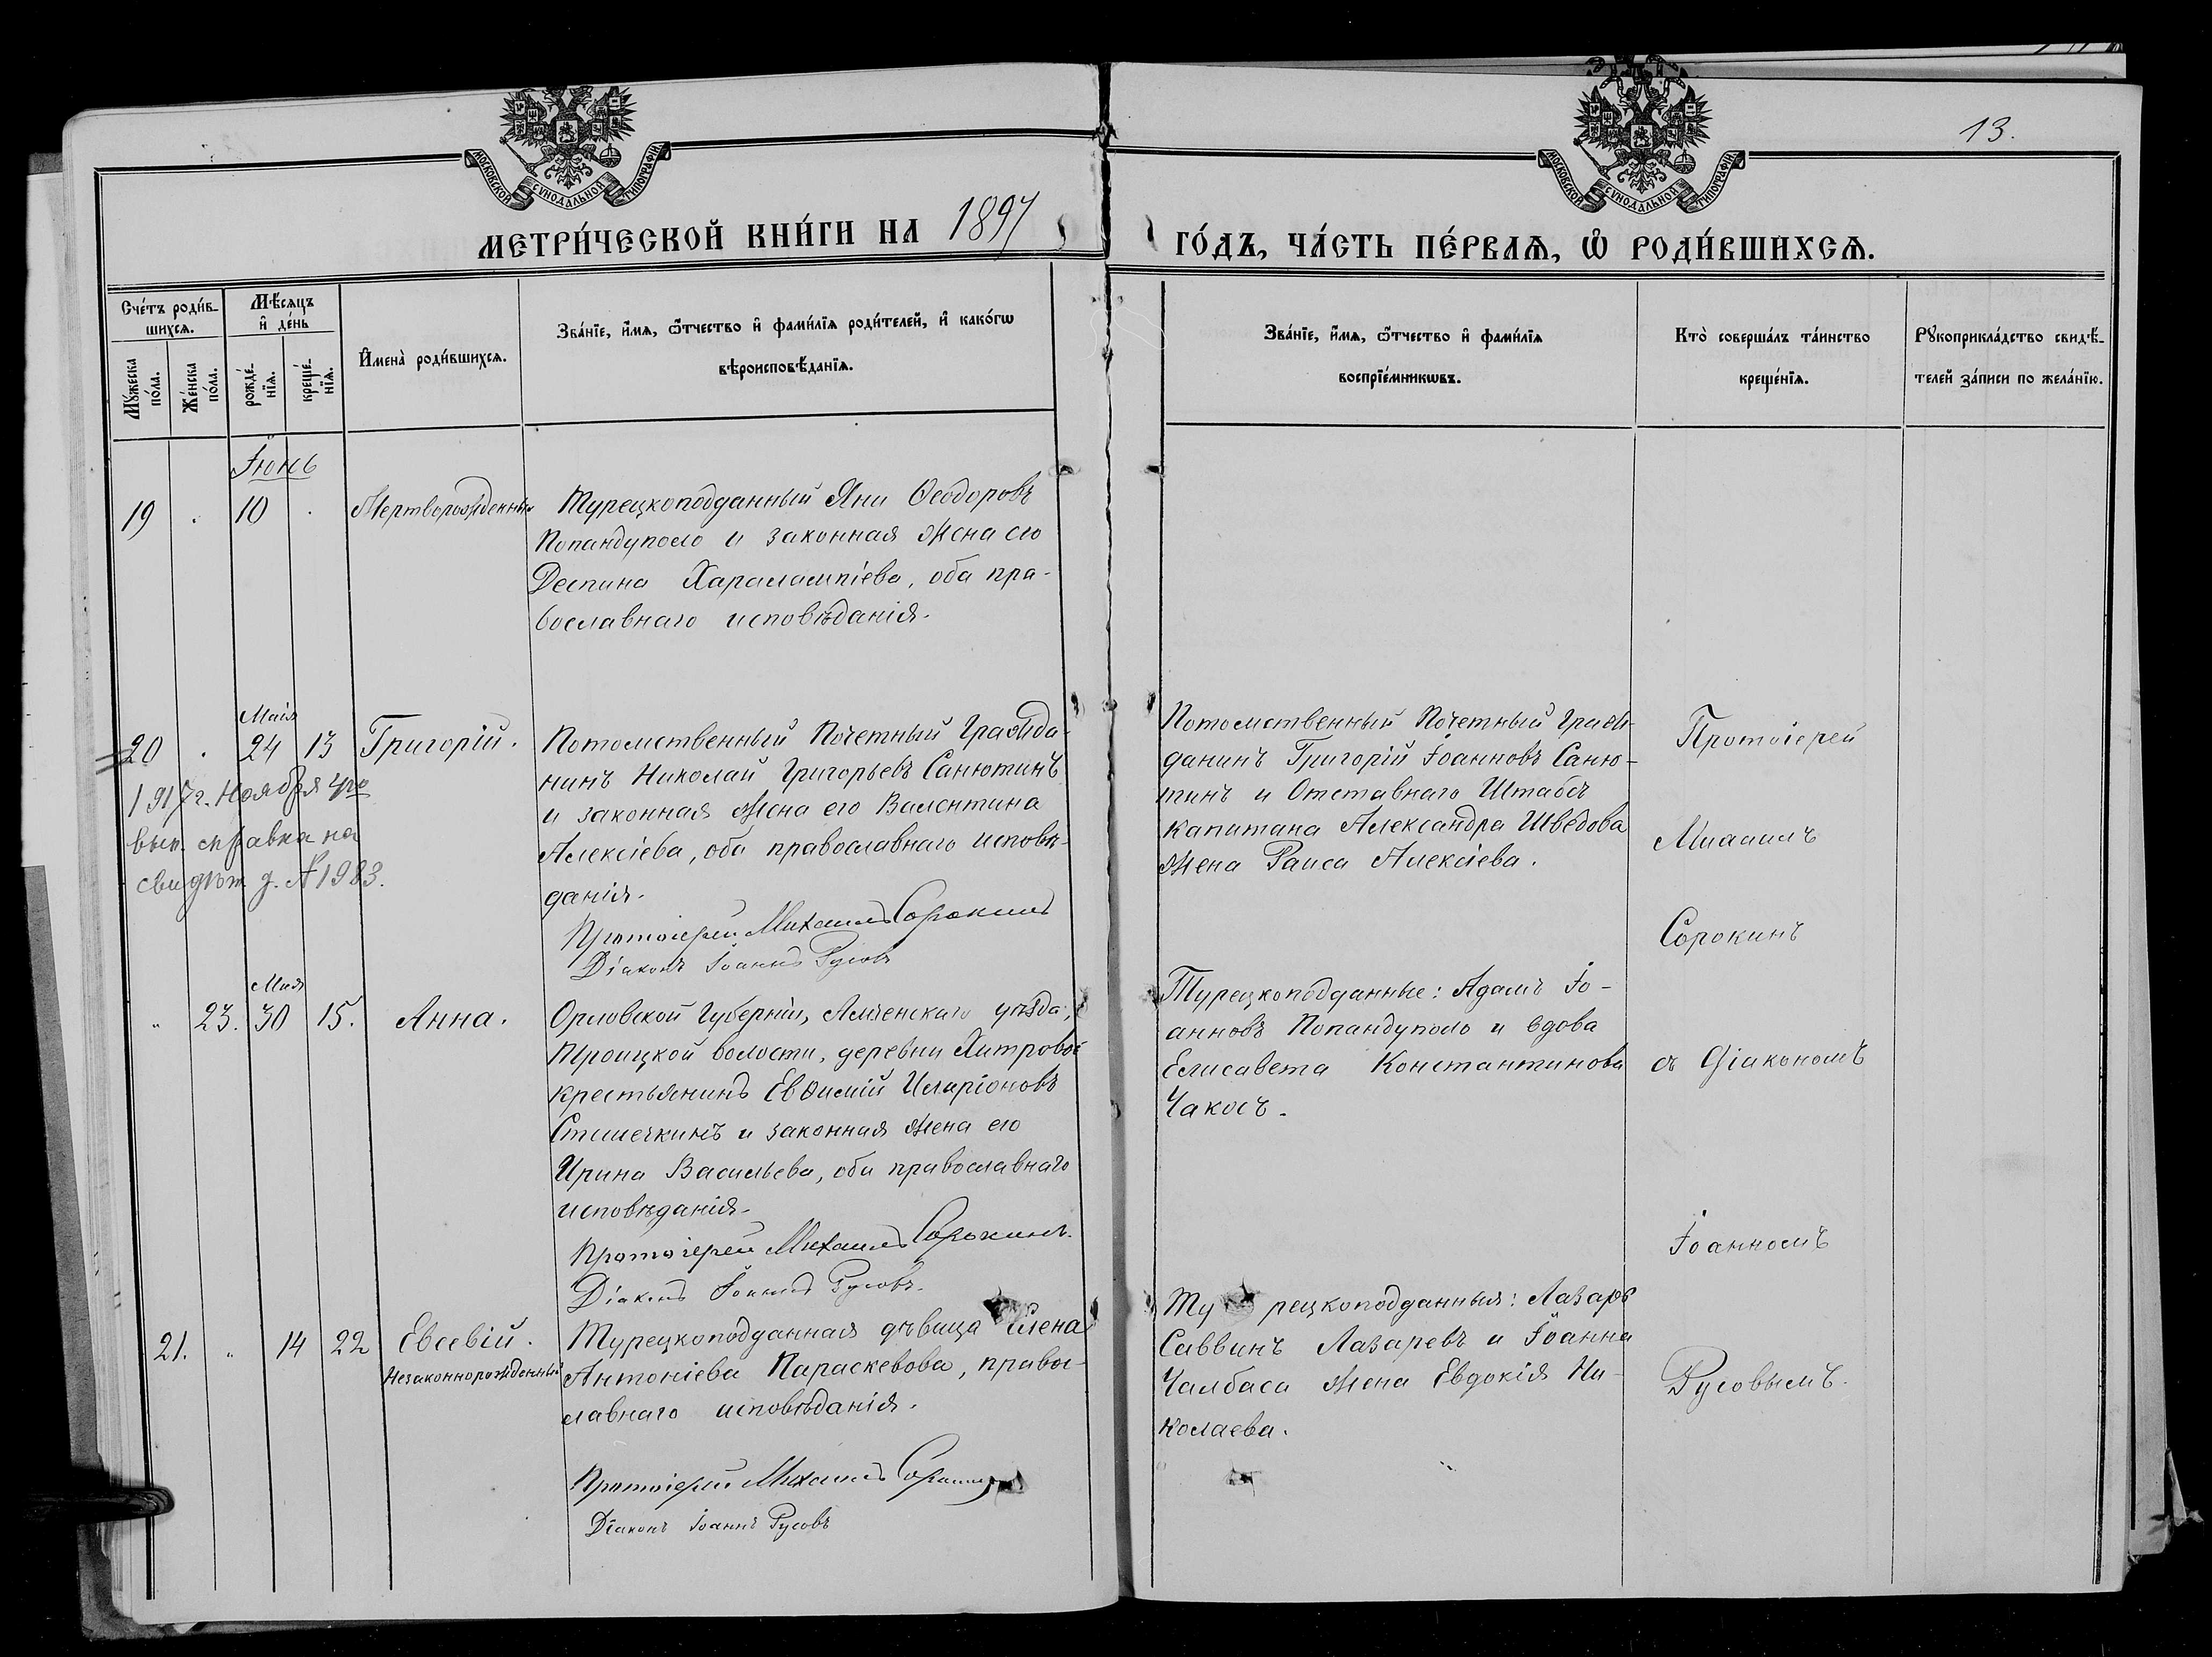 13.
МОСКОВСКОЙ СѴНОДАЛЬНОЙ ТИПОГРАФІИ
МОСКОВСКОЙ СѴНОДАЛЬНОЙ ТИПОГРАФІИ
МЕТРИ́ЧЕСКОЙ КНИ́ГИ НА 1897 ГО́ДЪ, ЧА́СТЬ ПЕ́РВАѦ, Ѡ҆ РОДИ́ВШИХСѦ.
Сче́тъ роди́в-
шихсѧ.
Мꙋ́жеска
по́ла.
Же́нска
по́ла.
Мѣ́сѧцъ
и҆ де́нь
рожде́-
нїѧ.
креще́-
нїѧ.
И҆мена̀ роди́вшихсѧ.
Зва́нїе, и҆́мѧ, ѻ҆́тчество и҆ фами́лїѧ роди́телей, и҆ како́гѡ
вѣроисповѣ́данїѧ.
Зва́нїе, и҆́мѧ, ѻ҆́тчество и҆ фами́лїѧ
воспрїе́мникѡвъ.
Кто̀ соверша́лъ та́инство
креще́нїѧ.
Рꙋкоприкла́дство свидѣ́-
телей за́писи по жела́нїю.
Іюнь
19 . 10 . Мертворожденный
Турецкоподданный Яни Ѳеодоровъ
Попандуполо и законная жена его
Деспина Харалампіева, оба пра-
вославнаго исповѣданія.
Маія
20 . 24 13 Григорій.
1917 г. Ноября 4го
вып. справка на
свидѣт з. № 1983.
Потомственный Почетный Гражда-
нинъ Николай Григорьевъ Санютинъ
и законная жена его Валентина
Алексіева, оба православнаго исповѣ-
данія.
Протоіерей Михаилъ Сорокинъ
Діаконъ Іоаннъ Русовъ
Потомственный Почетный Граж-
данинъ Григорій Іоанновъ Саню-
тинъ и Отставнаго Штабсъ
Капитана Александра Шведова
жена Раиса Алексіева.
Протоіерей
Михаилъ
Сорокинъ
съ Діакономъ
Іоанномъ
Русовымъ.
Мая
" 23. 30 15. Анна.
Орловской Губерніи, Мценскаго уѣзда,
Троицкой волости, деревни Хитровой
крестьянинъ Евѳимій Иларіоновъ
Стишечкинъ и законная жена его
Ирина Васильева, оба православнаго
исповѣданія.
Протоіерей Михаилъ Сорокинъ.
Діаконъ Іоаннъ Русовъ.
Турецкоподданные: Адамъ Іо-
анновъ Попандуполо и вдова
Елисавета Константинова
Чакосъ.
21. " 14 22 Евсевій.
Незаконнорожденный
Турецкоподданная дѣвица Елена
Антоніева Параскевова, право-
славнаго исповѣданія.
Протоіерей Михаилъ Сорокинъ
Діаконъ Іоаннъ Русовъ
Турецкоподданныя: Лазарь
Саввинъ Лазаревъ и Іоанна
Чалбаса жена Евдокія Ни-
колаева.